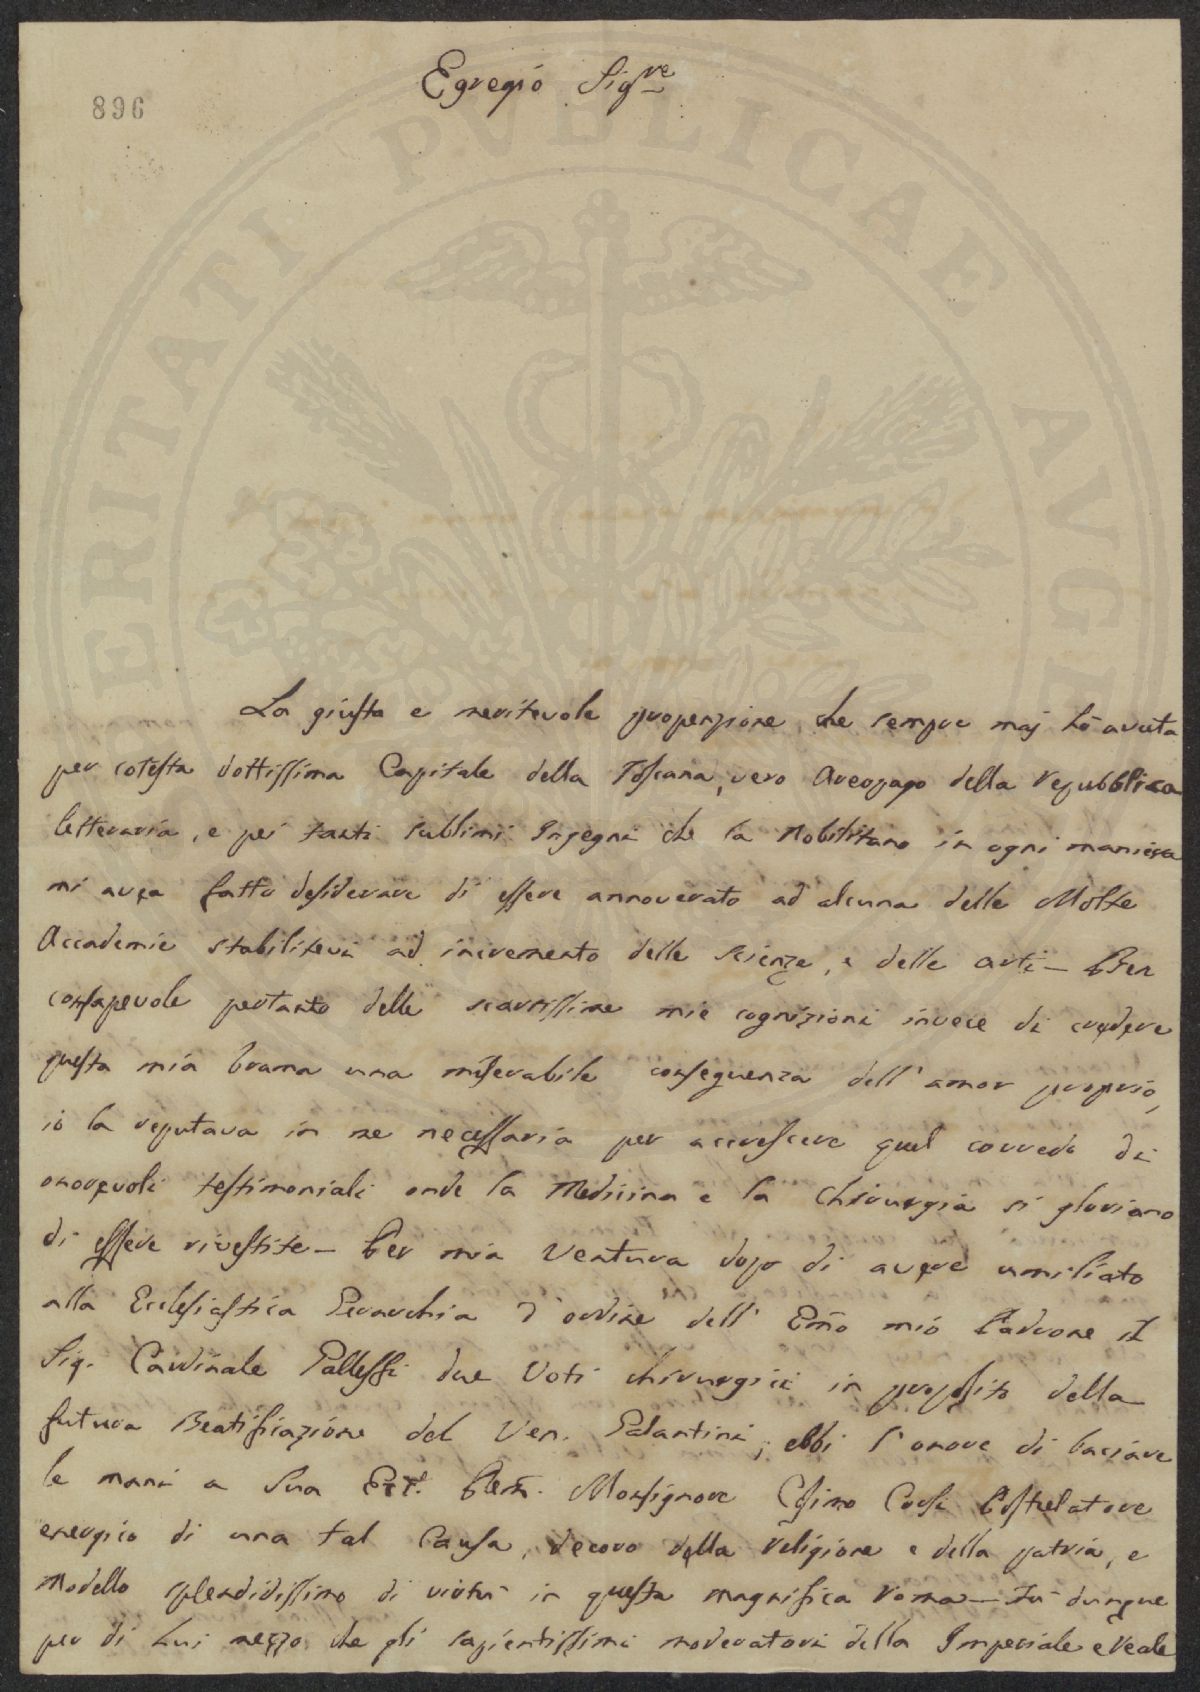 Egregio Sig.re
896
La giusta e meritevole propenzione che sempre maj hò avuta
per cotesta dottissima Capitale della Toscana, vero Areopago della repubblica
letteraria, e pei tanti sublimi Ingegni che la Nobilitano in ogni maniera
mi avea fatto desiderare di essere annoverato ad alcuna delle Molte
Accademie stabilitevi ad incremento delle scienze, e delle arti – Ben
consapevole pertanto delle scarsissime mie cognizioni invece di credere
questa mia brama una miserabile conseguenza dell' amor proprio,
io la reputava in me necessaria per accrescere quel corredo di
onorevoli testimoniali onde la Medicina e la Chirurgia si gloriano
di essere rivestite – Per mia Ventura dopo di avere umiliato
alla Ecclesiastica Gerarchia d' ordine dell' Emo mio Padrone il
Sig. Cardinale Pallotti due Voti chirurgici in proposito della
futura Beatificazione del Ven. Palantini, ebbi l' onore di baciare
le mani a Sua Ecc. Rem. Monsignore Cosimo Corsi Postulatore
energico di una tal Causa, decoro della religione e della patria, e
Modello splendidissimo di virtù in questa magnifica Roma – Fù dunque
per di Lui mezzo che gli sapientissimi moderatori della Imperiale e Reale
VERITATI PVBLICAE AVGE